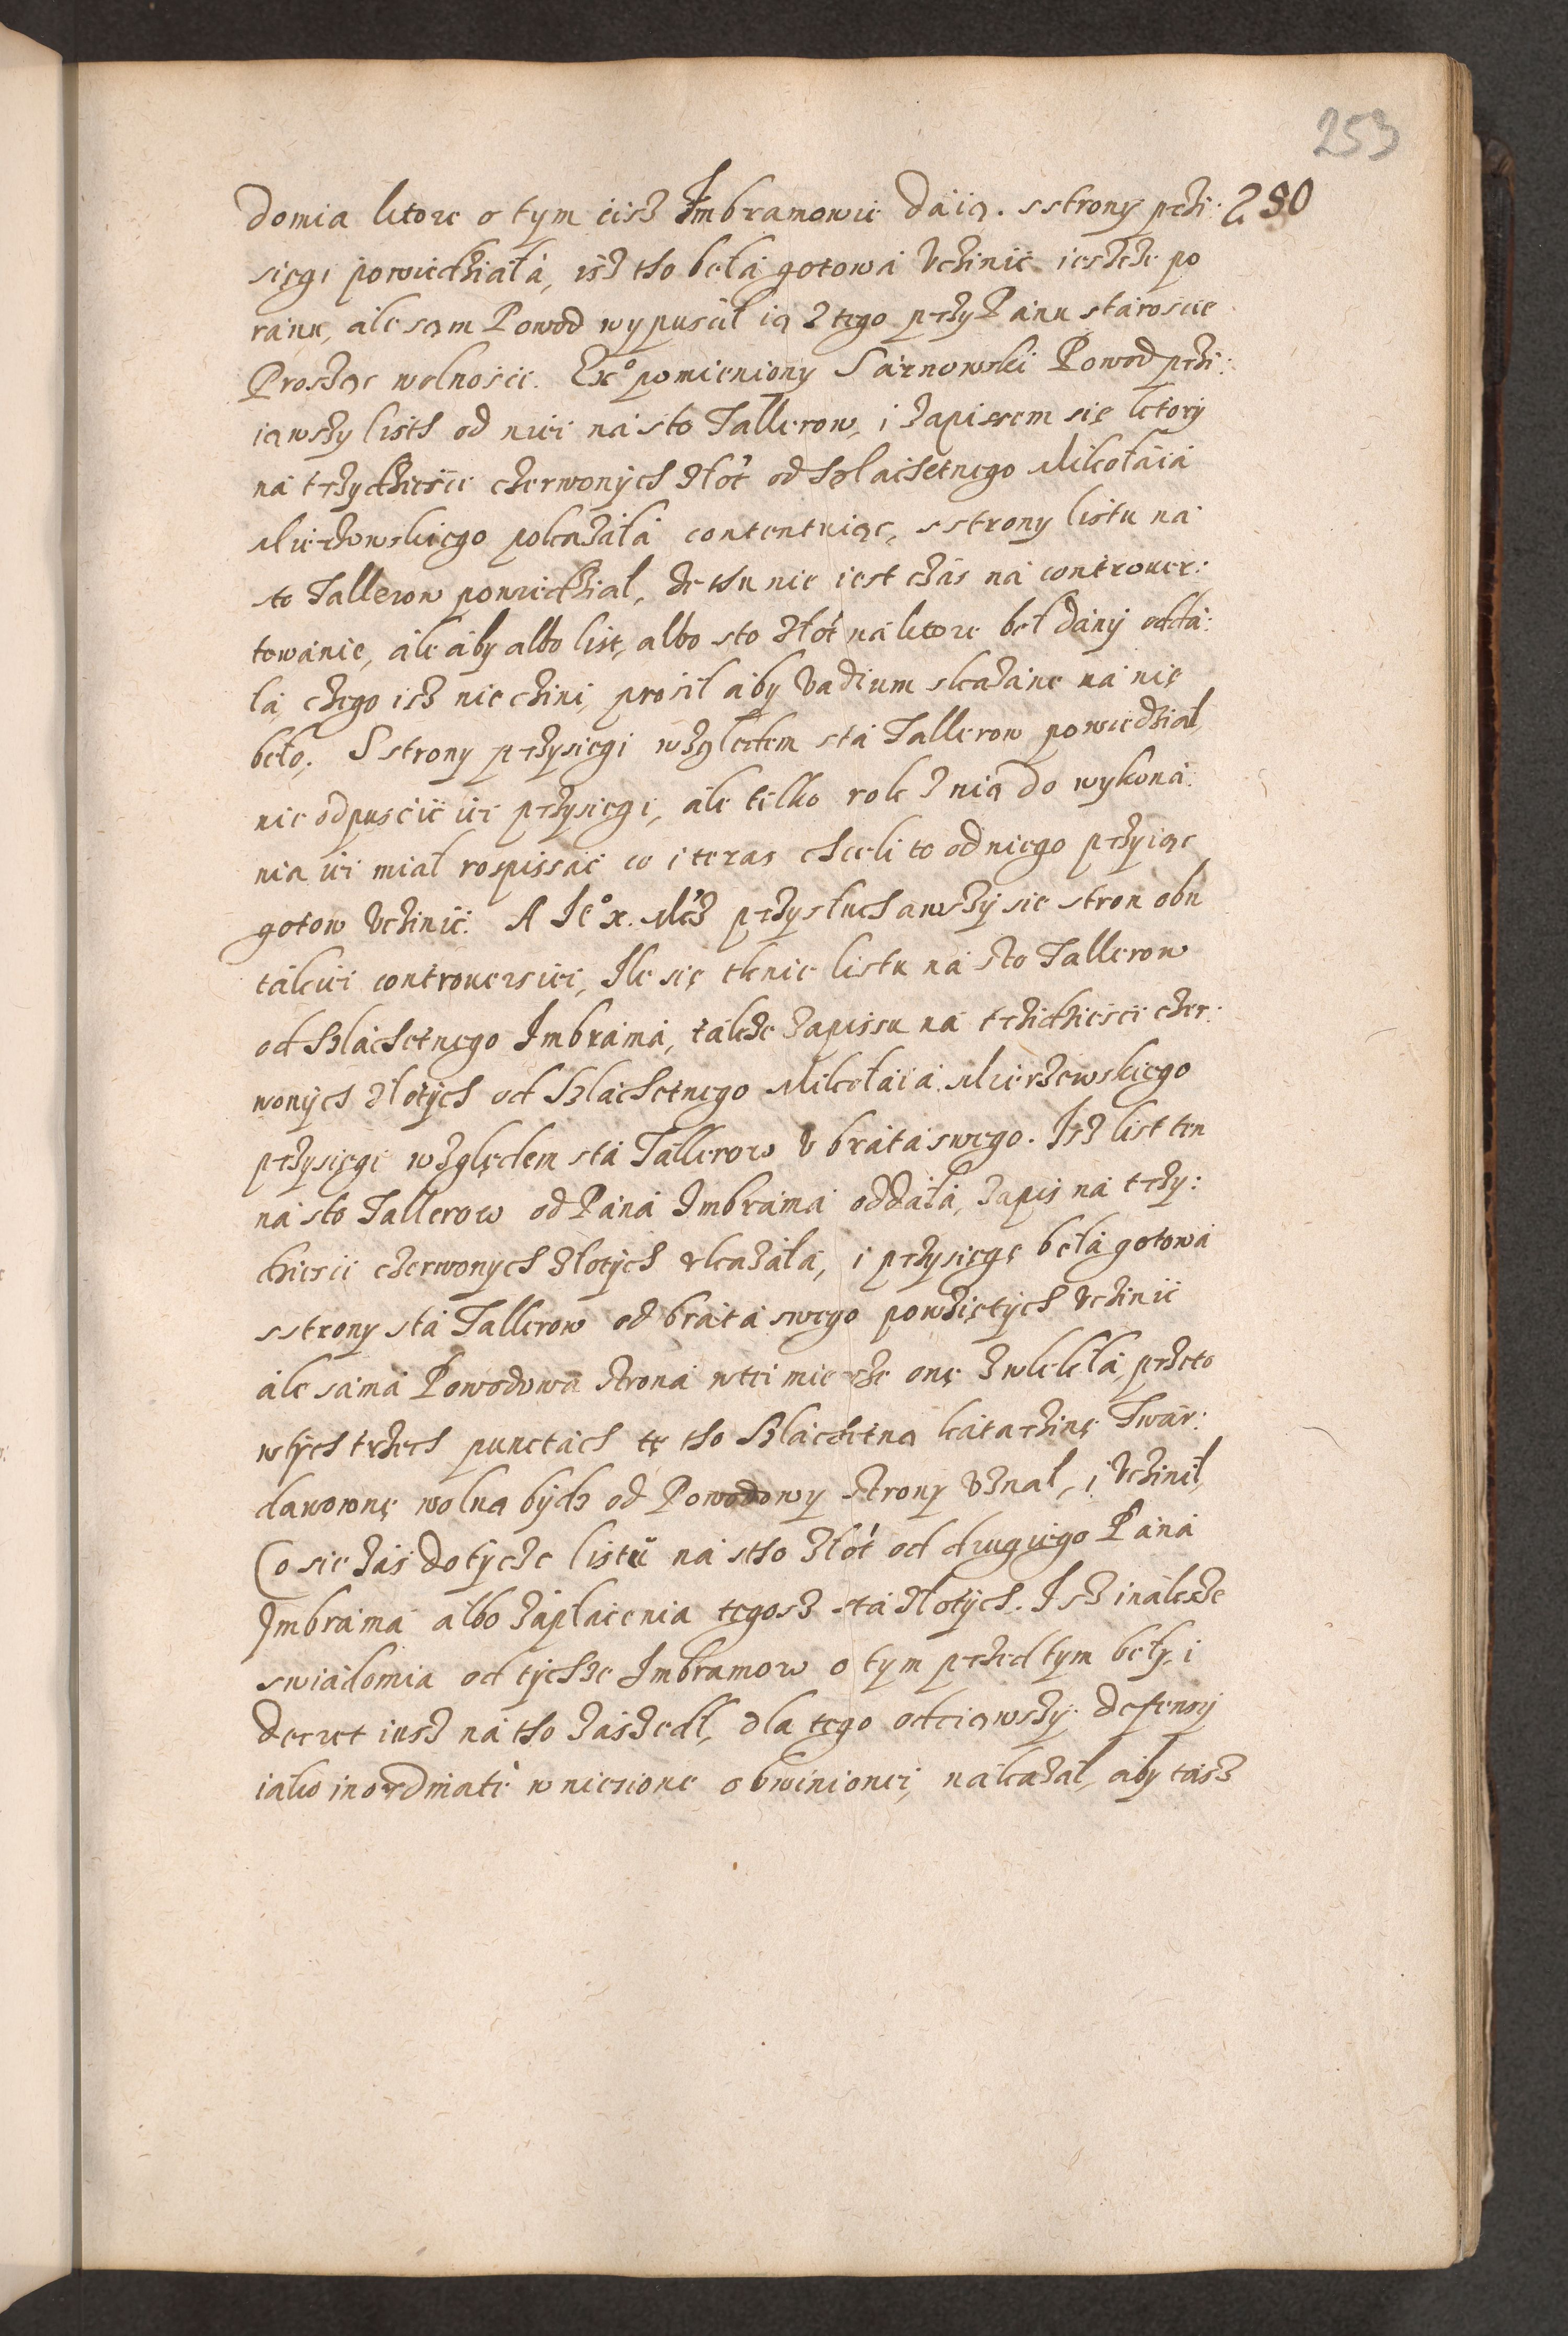 253
domia ktore o tym ciż Imbramowie daią. sstrony przi: 280
sięgi powiedziała, iż tho beła gotowa Vczinić ieszcze po
ranu, ale sam Powod wypuścił ią z tego przy Panu staroscie
Prosząc wolności. Ex° pomieniony Sarnowski Powod przi:
iąwszy listh od niei na sto Tallerow, i zapissem się ktory
na trzydzieście czerwonych złot od szlachetnego Mikołaia
Mierzewskiego pokazała contentuiąc, sstrony listu na
sto Tallerow powiedział, że thu nie iest czas na controuer:
towanie, ale aby albo list, albo sto złot na ktore beł dany odda:
ła, czego isz nie czini, prosił aby Vadium skazane na nię
beło, Sstrony przysięgi względem sta Tallerow powiedział,
nie odpuścić iei przysięgi, ale tilko rok z nią do wykona:
nia iei miał rospissać co i teraz chceli to od niego przyiąc
gotow Vczinić. A Je° x. Mcz przysłuchawszy sie stron obu
takiei controuersiei, Ile się tknie listu na sto Tallerow
od szlachetnego Imbrama, także zapissu na trzidzieści czer:
wonych złotych od szlachetnego Mikołaia Mierzewskiego
przysięgi względem sta Tallerow V brata swego. Isz list ten
na sto Tallerow od Pana Imbrama oddała, zapis na trzy:
dzieści czerwonych złotych vkazała, i przysięgę beła gotowa
sstrony sta Tallerow od brata swego powziętych Vczinić
ale sama Powodowa strona wtei mierze onę zwlekła, przeto
wtych trzech punctach tę tho szlachetną Katarzinę Twar:
dawownę wolną bydz od Powodowy strony Vznał, i Vczinił,
Co sie zas dotycze listu na stho złot od drugiego Pana
Imbrama albo zapłacenia tegosz sta złotych. Isz inaksze
swiadomia od tychże Imbramow o tym przedtym beły, i
decret iusz na tho zaszedł, dla tego odciąwszy defensy
iako inordinatè wniesione obwinionei, nakazał, aby tasz